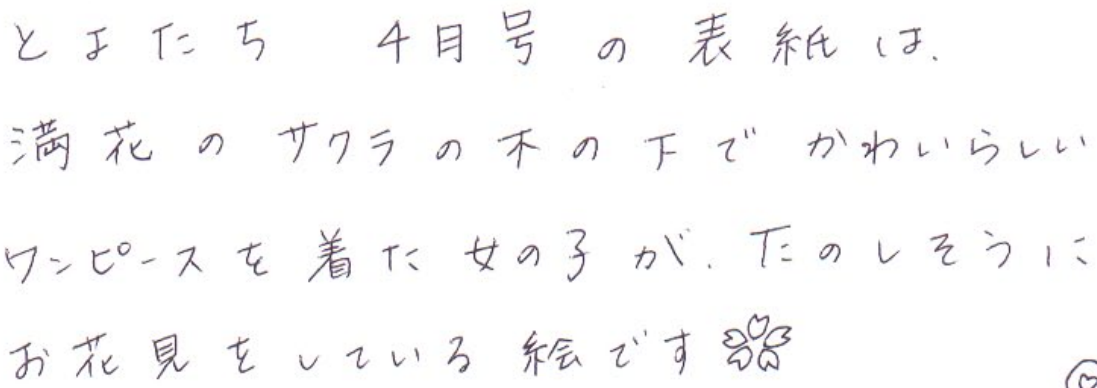 とよたち 4月号の表紙は、
満花のサクラの木の下でかわいらしい
ワンピースを着た女の子が、たのしそうに
お花見をしている絵です